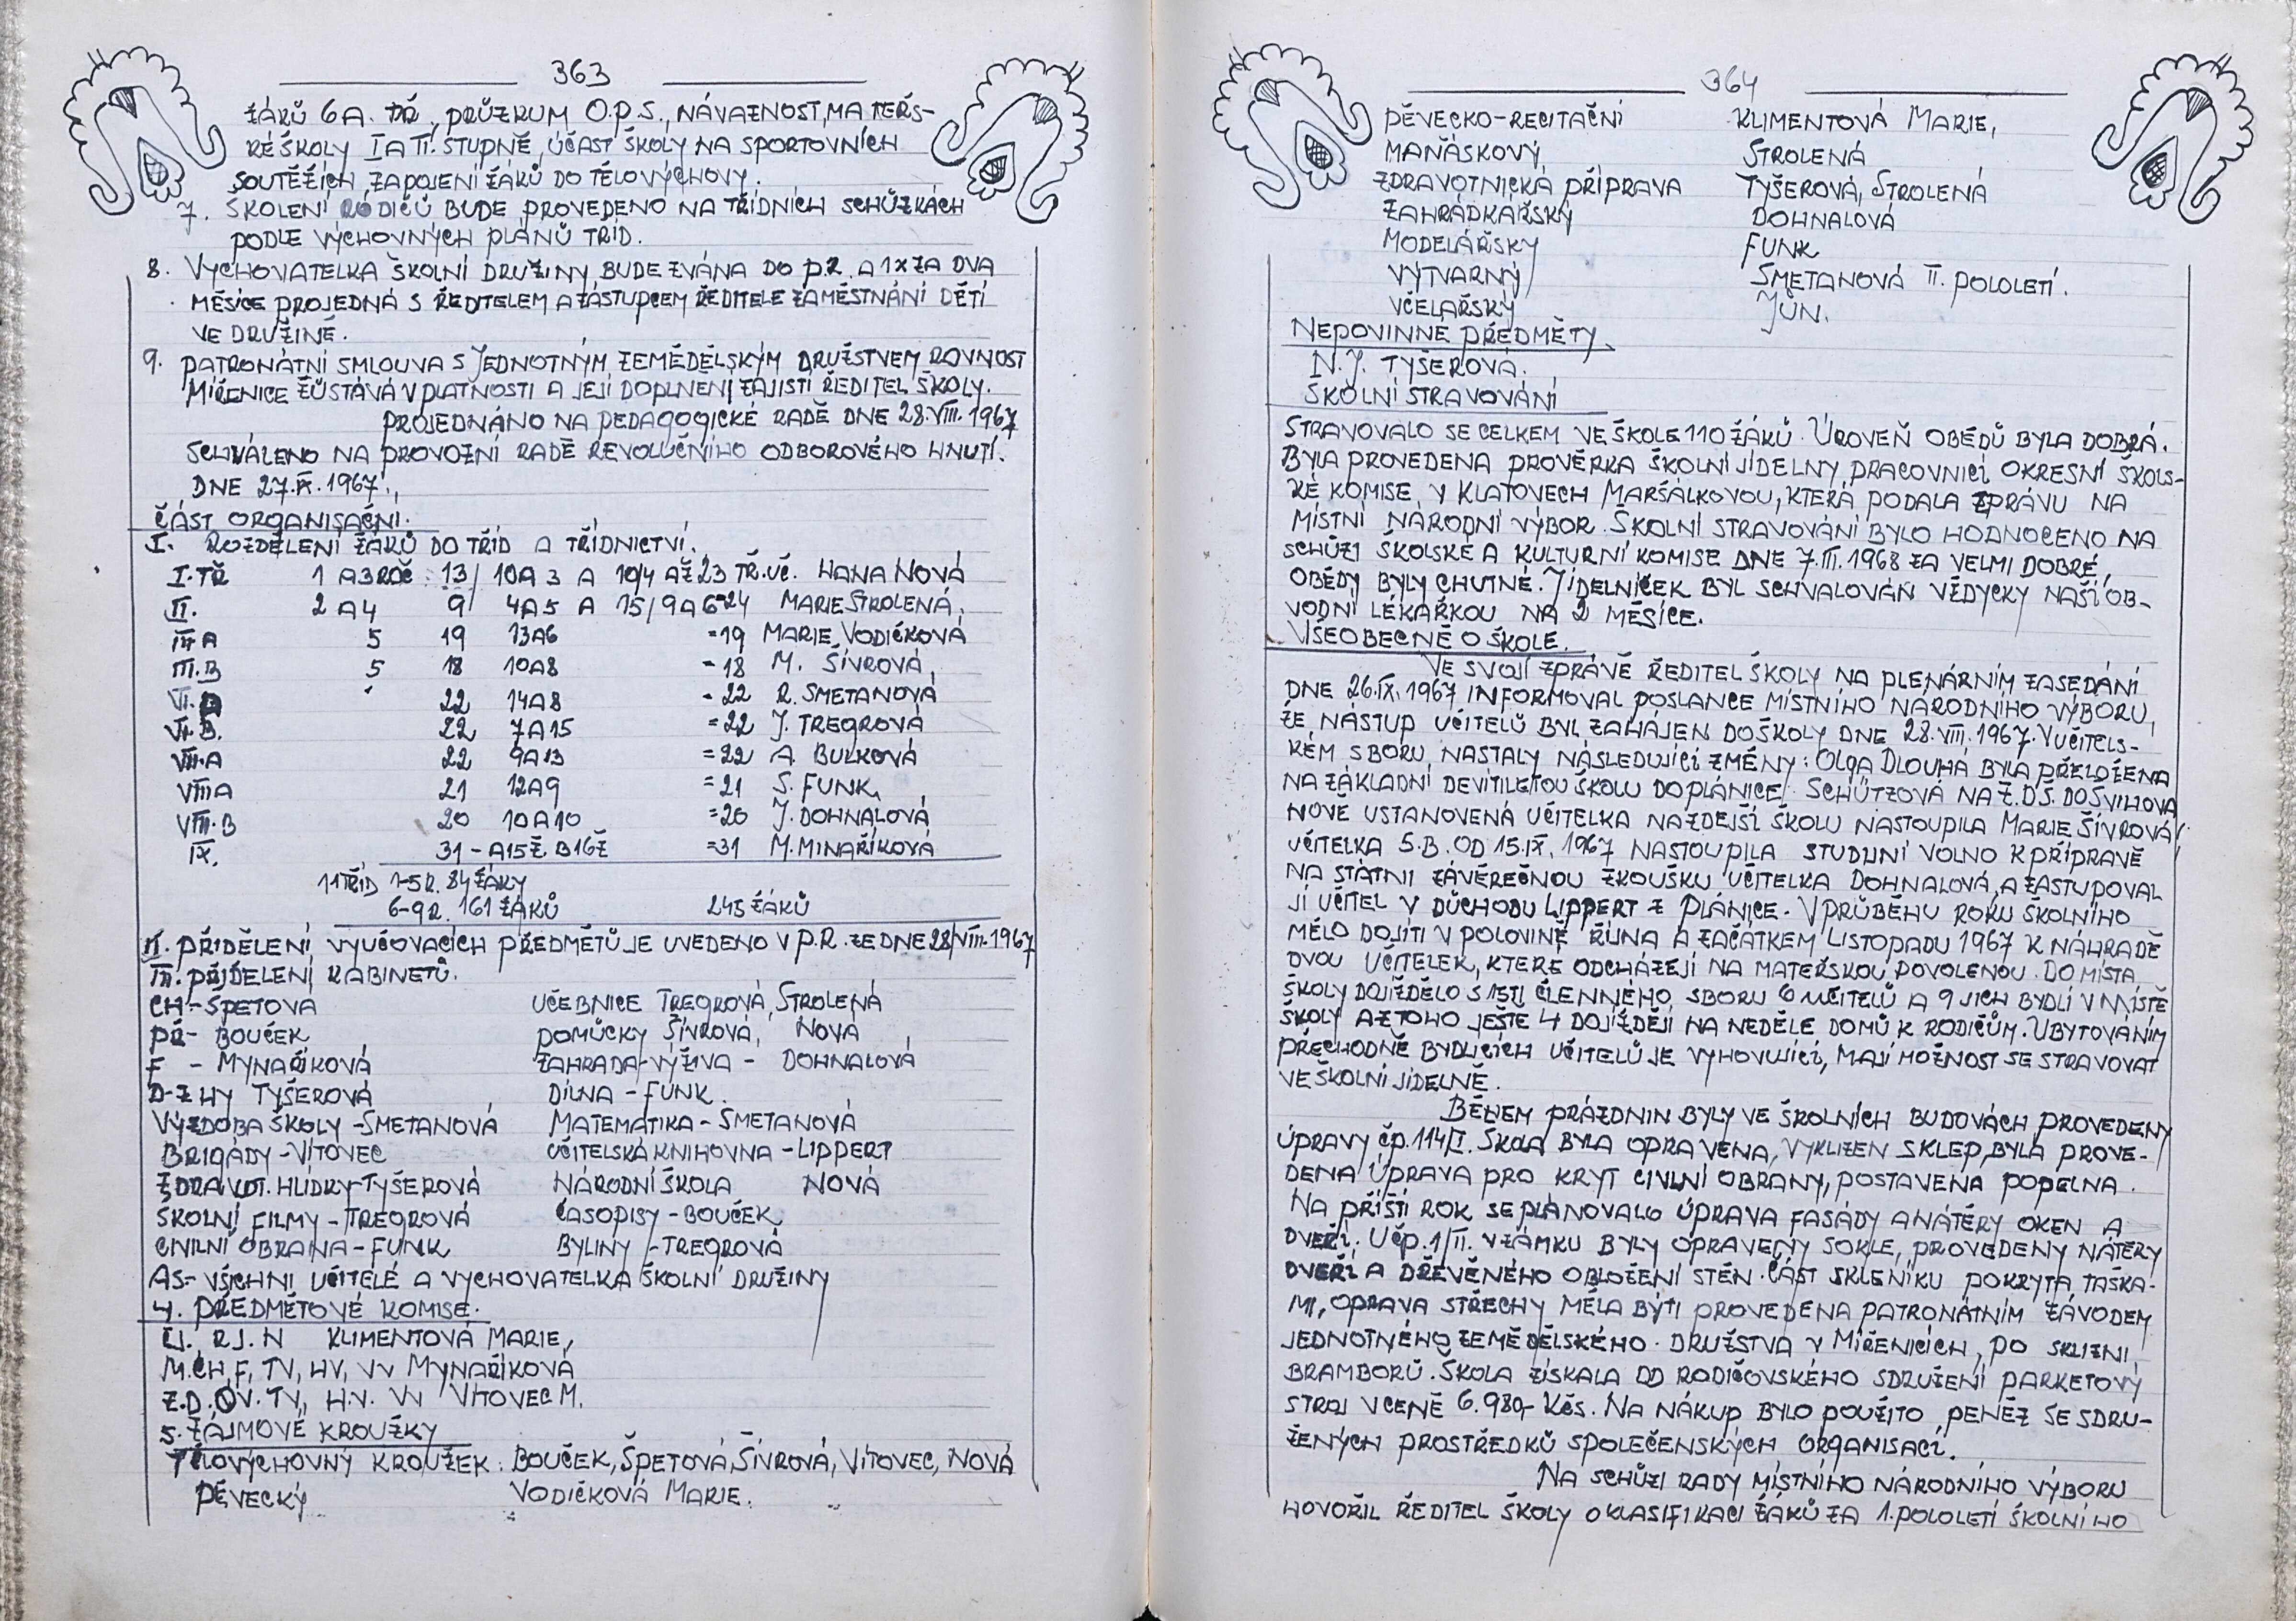 363
ŽÁKŮ 6A. TŘ. PRŮZKUM O.P.S., NÁVAZNOST, MATEŘS-
KÉ ŠKOLY I A II. STUPNĚ, ÚČAST ŠKOLY NA SPORTOVNÍCH
SOUTĚŽÍCH, ZAPOJENÍ ŽÁKŮ DO TĚLOVÝCHOVY.
7. ŠKOLENÍ RODIČŮ BUDE PROVEDENO NA TŘÍDNÍCH SCHŮZKÁCH
PODLE VÝCHOVNÝCH PLÁNŮ TŘÍD.
8. VYCHOVATELKA ŠKOLNÍ DRUŽINY BUDE ZVÁNA DO P.R. A 1X ZA DVA
MĚSÍCE PROJEDNÁ S ŘEDITELEM A ZÁSTUPCEM ŘEDITELE ZAMĚSTNÁNÍ DĚTÍ
VE DRUŽINĚ.
9. PATRONÁTNÍ SMLOUVA S JEDNOTNÝM ZEMĚDĚLSKÝM DRUŽSTVEM ROVNOST
MÍŘENICE ZŮSTÁVÁ V PLATNOSTI A JEJÍ DOPLNENÍ ZAJISTÍ ŘEDITEL ŠKOLY.
PROJEDNÁNO NA PEDAGOGICKÉ RADĚ DNE 28.VIII.1967
SCHVÁLENO NA PROVOZNÍ RADĚ REVOLUČNÍHO ODBOROVÉHO HNUTÍ.
DNE 27.IX.1967.
ČÁST ORGANISAČNÍ.
I. ROZDĚLENÍ ŽÁKŮ DO TŘÍD A TŘÍDNICTVÍ.
I.TŘ 1 A3ROČ: 13/ 10A 3 A 10/4 AŽ 23 TŘ.UČ. HANA NOVÁ
II. 2 A 4 9/ 4A5 A 15/9A6=24 MARIE STROLENÁ,
III A 5 19 13A6 =19 MARIE VODIČKOVÁ
III.B 5 18 10A8 - 18 M. ŠÍVROVÁ,
VI. 22 14A8 - 22 R. SMETANOVÁ
VI.B. 22 7A15 =22 J. TREGROVÁ
VII.A 22 9A13 =22 A. BULKOVÁ
VIII A 21 12A9 =21 S. FUNK,
VIII.B 20 10A10 =20 J. DOHNALOVÁ
IX. 31 - A15Ž. B16Ž =31 M. MINAŘÍKOVÁ
11 TŘÍD 1-5R. 84 ŽÁKY
6-9R. 161 ŽÁKŮ 245 ŽÁKŮ
II. PŘIDĚLENÍ VYUČOVACÍCH PŘEDMĚTŮ JE UVEDENO V P.R. ZE DNE 28/VIII.1967
III. PŘIDĚLENÍ KABINETŮ.
CH-ŠPETOVÁ UČEBNICE TREGROVÁ, STROLENÁ
PŘ- BOUČEK POMŮCKY ŠÍVROVÁ, NOVÁ
F - MYNAŘÍKOVÁ ZAHRADA-VÝŽIVA - DOHNALOVÁ
D-Z HY TYŠEROVÁ DÍLNA - FUNK.
VÝZDOBA ŠKOLY -SMETANOVÁ MATEMATIKA - SMETANOVÁ
BRIGÁDY -VÍTOVEC UČITELSKÁ KNIHOVNA - LIPPERT
ZDRAVOT. HLÍDKY-TYŠEROVÁ NÁRODNÍ ŠKOLA NOVÁ
ŠKOLNÍ FILMY - TREGROVÁ ČASOPISY - BOUČEK
CIVILNÍ OBRANA - FUNK BYLINY - TREGROVÁ
AS- VŠICHNI UČITELÉ A VYCHOVATELKA ŠKOLNÍ DRUŽINY
4. PŘEDMĚTOVÉ KOMISE.
ČJ. RJ. N KLIMENTOVÁ MARIE,
M.CH, F, TV, HV, VV MYNAŘÍKOVÁ
Z.D. OV. TV, H.V. VV VÍTOVEC M.
5. ZÁJMOVÉ KROUŽKY
TĚLOVÝCHOVNÝ KROUŽEK: BOUČEK, ŠPETOVÁ, ŠÍVROVÁ, VÍTOVEC, NOVÁ
PĚVECKÝ VODIČKOVÁ MARIE.
364
PĚVECKO-RECITAČNÍ KLIMENTOVÁ MARIE,
MAŇÁSKOVÝ STROLENÁ
ZDRAVOTNICKÁ PŘÍPRAVA TYŠEROVÁ, STROLENÁ
ZAHRÁDKÁŘSKÝ DOHNALOVÁ
MODELÁŘSKÝ FUNK
VÝTVARNÝ SMETANOVÁ II. POLOLETÍ.
VČELAŘSKÝ JŮN.
NEPOVINNÉ PŘEDMĚTY.
N.J. TYŠEROVÁ.
ŠKOLNÍ STRAVOVÁNÍ
STRAVOVALO SE CELKEM VE ŠKOLE 110 ŽÁKŮ. ÚROVEŇ OBĚDŮ BYLA DOBRÁ.
BYLA PROVEDENA PROVĚRKA ŠKOLNÍ JÍDELNY PRACOVNICÍ OKRESNÍ ŠKOLS-
KÉ KOMISE V KLATOVECH MARŠÁLKOVOU, KTERÁ PODALA ZPRÁVU NA
MÍSTNÍ NÁRODNÍ VÝBOR. ŠKOLNÍ STRAVOVÁNÍ BYLO HODNOCENO NA
SCHŮZI ŠKOLSKÉ A KULTURNÍ KOMISE DNE 7.III.1968 ZA VELMI DOBRÉ,
OBĚDY BYLY CHUTNÉ. JÍDELNÍČEK BYL SCHVALOVÁN VŽDYCKY NAŠÍ OB-
VODNÍ LÉKAŘKOU NA 2 MĚSÍCE.
VŠEOBECNĚ O ŠKOLE.
VE SVOJÍ ZPRÁVĚ ŘEDITEL ŠKOLY NA PLENÁRNÍM ZASEDÁNÍ
DNE 26.IX.1967 INFORMOVAL POSLANCE MÍSTNÍHO NÁRODNÍHO VÝBORU,
ŽE NÁSTUP UČITELŮ BYL ZAHÁJEN DO ŠKOLY DNE 28.VIII.1967. V UČITELS-
KÉM SBORU NASTALY NÁSLEDUJÍCÍ ZMĚNY: OLGA DLOUHÁ BYLA PŘELOŽENA
NA ZÁKLADNÍ DEVÍTILETOU ŠKOLU DO PLÁNICE, SCHÜTZOVÁ NA Z.D.Š. DO ŠVIHOVA
NOVĚ USTANOVENÁ UČITELKA NA ZDEJŠÍ ŠKOLU NASTOUPILA MARIE ŠÍVROVÁ,
UČITELKA 5.B. OD 15.IX.1967 NASTOUPILA STUDIJNÍ VOLNO K PŘÍPRAVĚ
NA STÁTNÍ ZÁVĚREČNOU ZKOUŠKU UČITELKA DOHNALOVÁ, A ZASTUPOVAL
JÍ UČITEL V DŮCHODU LIPPERT Z PLÁNICE. V PRŮBĚHU ROKU ŠKOLNÍHO
MĚLO DOJÍTI V POLOVINĚ ŘÍJNA A ZAČÁTKEM LISTOPADU 1967 K NÁHRADĚ
DVOU UČITELEK, KTERÉ ODCHÁZEJÍ NA MATEŘSKOU POVOLENOU. DO MÍSTA
ŠKOLY DOJÍŽDĚLO S 15TI ČLENNÉHO SBORU 6 UČITELŮ A 9 JICH BYDLÍ V MÍSTĚ
ŠKOLY A Z TOHO JEŠTĚ 4 DOJÍŽDĚJÍ NA NEDĚLE DOMŮ K RODIČŮM. UBYTOVÁNÍM
PŘECHODNĚ BYDLÍCÍCH UČITELŮ JE VYHOVUJÍCÍ, MAJÍ MOŽNOST SE STRAVOVAT
VE ŠKOLNÍ JÍDELNĚ.
BĚHEM PRÁZDNIN BYLY VE ŠKOLNÍCH BUDOVÁCH PROVEDENY
ÚPRAVY ČP.114/I. ŠKOLA BYLA OPRAVENA, VYKLIZEN SKLEP, BYLA PROVE-
DENA ÚPRAVA PRO KRYT CIVILNÍ OBRANY, POSTAVENA POPELNA.
NA PŘÍŠTÍ ROK SE PLÁNOVALO ÚPRAVA FASÁDY A NÁTĚRY OKEN A
DVEŘÍ. U ČP.1/II. V ZÁMKU BYLY OPRAVENY SOKLE, PROVEDENY NÁTĚRY
DVEŘÍ A DŘEVĚNÉHO OBLOŽENÍ STĚN. ČÁST SKLENÍKU POKRYTA TAŠKA-
MI, OPRAVA STŘECHY MĚLA BÝTI PROVEDENA PATRONÁTNÍM ZÁVODEM
JEDNOTNÉHO ZEMĚDĚLSKÉHO DRUŽSTVA V MÍŘENICÍCH, PO SKLIZNI
BRAMBORŮ. ŠKOLA ZÍSKALA OD RODIČOVSKÉHO SDRUŽENÍ PARKETOVÝ
STROJ V CENĚ 6.980,- KČS. NA NÁKUP BYLO POUŽITO PENĚZ SE SDRU-
ŽENÝCH PROSTŘEDKŮ SPOLEČENSKÝCH ORGANISACÍ.
NA SCHŮZI RADY MÍSTNÍHO NÁRODNÍHO VÝBORU
HOVOŘIL ŘEDITEL ŠKOLY O KLASIFIKACI ŽÁKŮ ZA 1. POLOLETÍ ŠKOLNÍHO